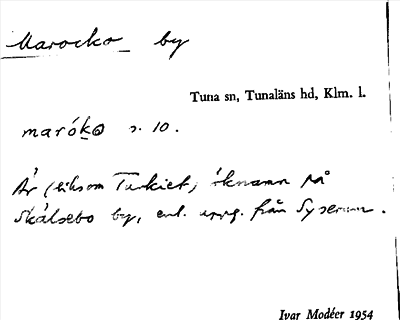 Marocko by
Tuna sn, Tunaläns hd, Klm. l.
maróko s. 10.
Är (liksom Turkiet) öknamn på
Skälsebo by, enl. uppg. från Syserum.
Ivar Modéer 1954